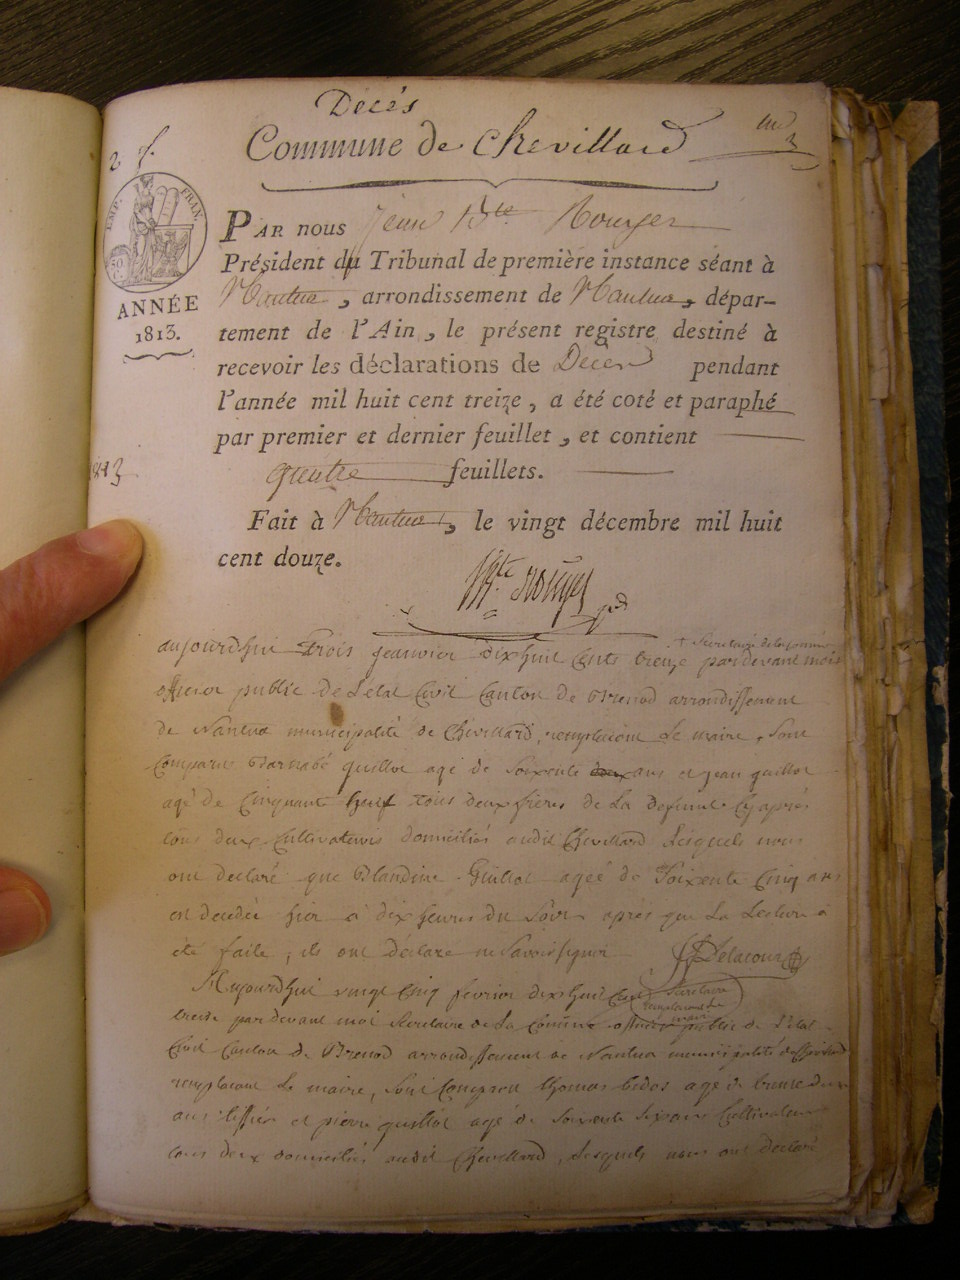 Décès
Commune de Chevillard
2 f.
EMP. FRAN.
50 C.
ANNÉE
1813.
PAR nous Jean Bte Rouyer
Président du Tribunal de première instance séant à
Nantua, arrondissement de Nantua, dépar-
tement de l'Ain, le présent registre destiné à
recevoir les déclarations de Décès pendant
l'année mil huit cent treize, a été coté et paraphé
par premier et dernier feuillet, et contient
quatre feuillets.
Fait à Nantua, le vingt décembre mil huit
cent douze.
Bte Rouyer
+ Secrétaire de la commune
aujourdhui trois jeanvier dix huit Cents treize pardevant mois
officier public de Letat Civil Canton de Brenod arrondissement
de Nantua municipalité de Chevillard, remplacant Le maire, Sont
Comparu Barnabé guillot agé de Soixente deux ans et jean guillot
agé de Cinquant huit tous deux frères de La defunte Cy après
tous deux Cultivateurs domiciliés audit Chevillard Lesquels nous
ont declaré que Blandine Guillot agée de Soixente Cinq ans
et decedée hier a dix heures du Soir après que La Lecture a
été faite, ils ont declare ne Savoir signer Delacour
Secrétaire
remplacant Le
maire
Aujourdhui vingt Cinq fevrier dix huit Cent
treize pardevant moi Secretaire de La Commune officier public de L'etat
Civil Canton de Brenod arrondissement de Nantua municipalité de Chevillard
remplacant Le maire, Sont Comparu thomas bedos agé de trente deux
ans tissier et pierre guillot agé de Soixente Six ans Cultivateur
tous deux domiciliés audit Chevillard, Lesquels nous ont declaré